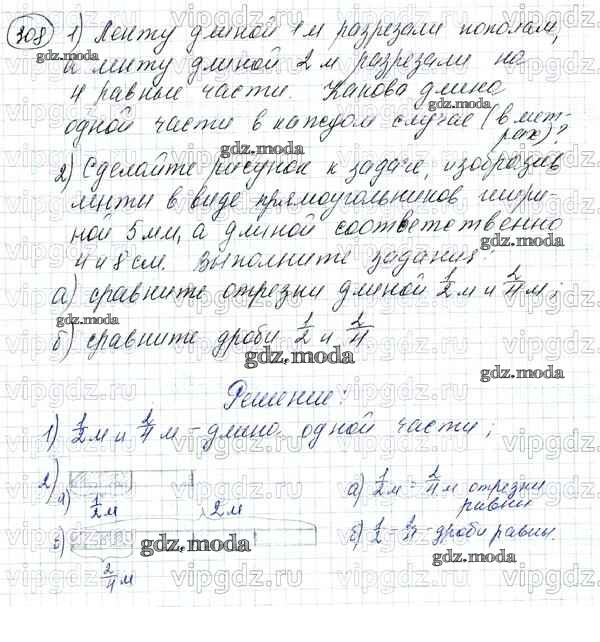 308 1) Ленту длиной 1м разрезали пополам,
а ленту длиной 2 м разрезали на
4 равные части. Какова длина
одной части в каждом случае (в мет-
рах)?
2) Сделайте рисунок к задаче, изобразив
ленти в виде прямоугольников шири-
ной 5мм, а длиной соответственно
4 и 8 см. Выполните задания:
а) сравните отрезки длиной 1/2 м и 2/4 м;
б) сравните дроби 1/2 и 2/4
Решение:
1) 1/2 м и 2/4 м - длина одной части;
2)
а) 1/2 м
2м
б)
2/4 м
а) 1/2 м = 2/4 м отрезки
равни
б) 1/2 = 2/4 - дроби равны.
gdz.moda
vipgdz.ru